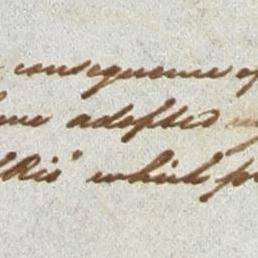 consequence of
have adopted
Rio" which